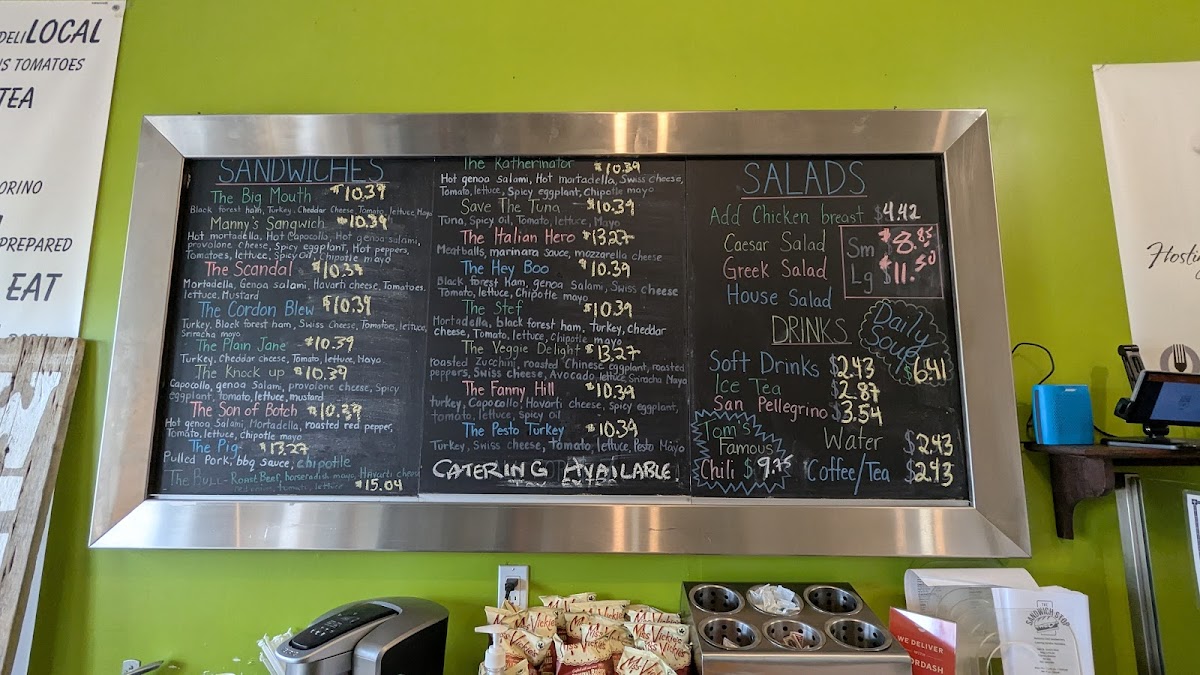 DELI LOCAL
TOMATOES
TEA
ORINO
PREPARED
EAT
SANDWICHES
The Big Mouth $10.39
Black forest ham, Turkey, Cheddar Cheese, Tomato, lettuce, Mayo
Manny's Sangwich $10.39
Hot mortadella, Hot Capocollo, Hot genoa salami,
provolone cheese, Spicy eggplant, Hot peppers,
Tomatoes, lettuce, Spicy Oil, Chipotle mayo
The Scandal $10.39
Mortadella, Genoa salami, Havarti cheese, Tomatoes,
lettuce, Mustard
The Cordon Blew $10.39
Turkey, Black forest ham, Swiss Cheese, Tomatoes, lettuce,
Sriracha mayo
The Plain Jane $10.39
Turkey, Cheddar cheese, Tomato, lettuce, Mayo
The Knock up $10.39
Capocollo, genoa Salami, provolone cheese, Spicy
eggplant, tomato, lettuce, mustard
The Son of Botch $10.39
Hot genoa Salami, Mortadella, roasted red pepper,
Tomato, lettuce, chipotle mayo
The Pig $13.27
Pulled Pork, bbq sauce, chipotle
The Bull - Roast Beef, horseradish mayo, Havarti cheese
tomato, lettuce $15.04
The Katherinator $10.39
Hot genoa salami, Hot mortadella, Swiss cheese,
Tomato, lettuce, Spicy eggplant, Chipotle mayo
Save The Tuna $10.39
Tuna, Spicy Oil, Tomato, lettuce, Mayo
The Italian Hero $13.27
Meatballs, marinara sauce, mozzarella cheese
The Hey Boo $10.39
Black forest Ham, genoa Salami, Swiss cheese
Tomato, lettuce, Chipotle mayo
The Stef $10.39
Mortadella, black forest ham, Turkey, cheddar
cheese, Tomato, lettuce, Chipotle mayo
The Veggie Delight $13.27
roasted Zucchini, roasted Chinese eggplant, roasted
peppers, Swiss cheese, Avocado, lettuce, Sriracha Mayo
The Fanny Hill $10.39
turkey, Capocollo, Havarti cheese, Spicy eggplant,
tomato, lettuce, Spicy oil
The Pesto Turkey $10.39
Turkey, Swiss cheese, Tomato, lettuce, Pesto Mayo
CATERING AVAILABLE
SALADS
Add Chicken breast $4.42
Caesar Salad
Greek Salad
House Salad
Sm $8.85
Lg $11.50
DRINKS
Soft Drinks $2.43
Ice Tea $2.87
San Pellegrino $3.54
Water $2.43
Coffee/Tea $2.43
Daily
Soup
$6.41
Tom's
Famous
Chili $9.75
Hostin
Miss Vickie's
WE DELIVER
WITH
DOORDASH
THE
SANDWICH
STOP